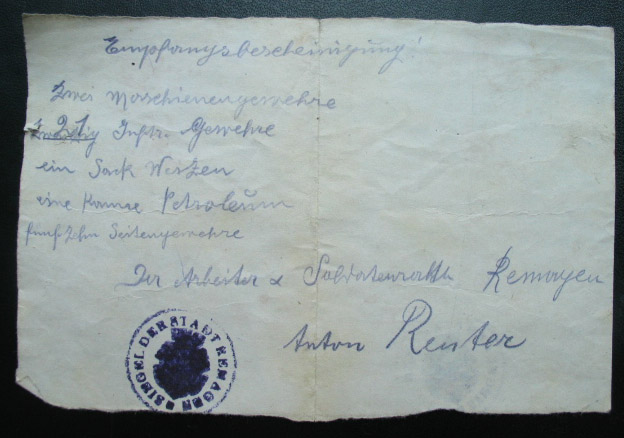 Empfangsbescheinigung!
Zwei Maschienengewehre
21 Inftr. Gewehre
ein Sack Weizen
eine Kanne Petroleum
fünfzehn Seitengewehre
Der Arbeiter & Soldatenrath Remagen
Anton Reuter
SIEGEL DER STADT REMAGEN